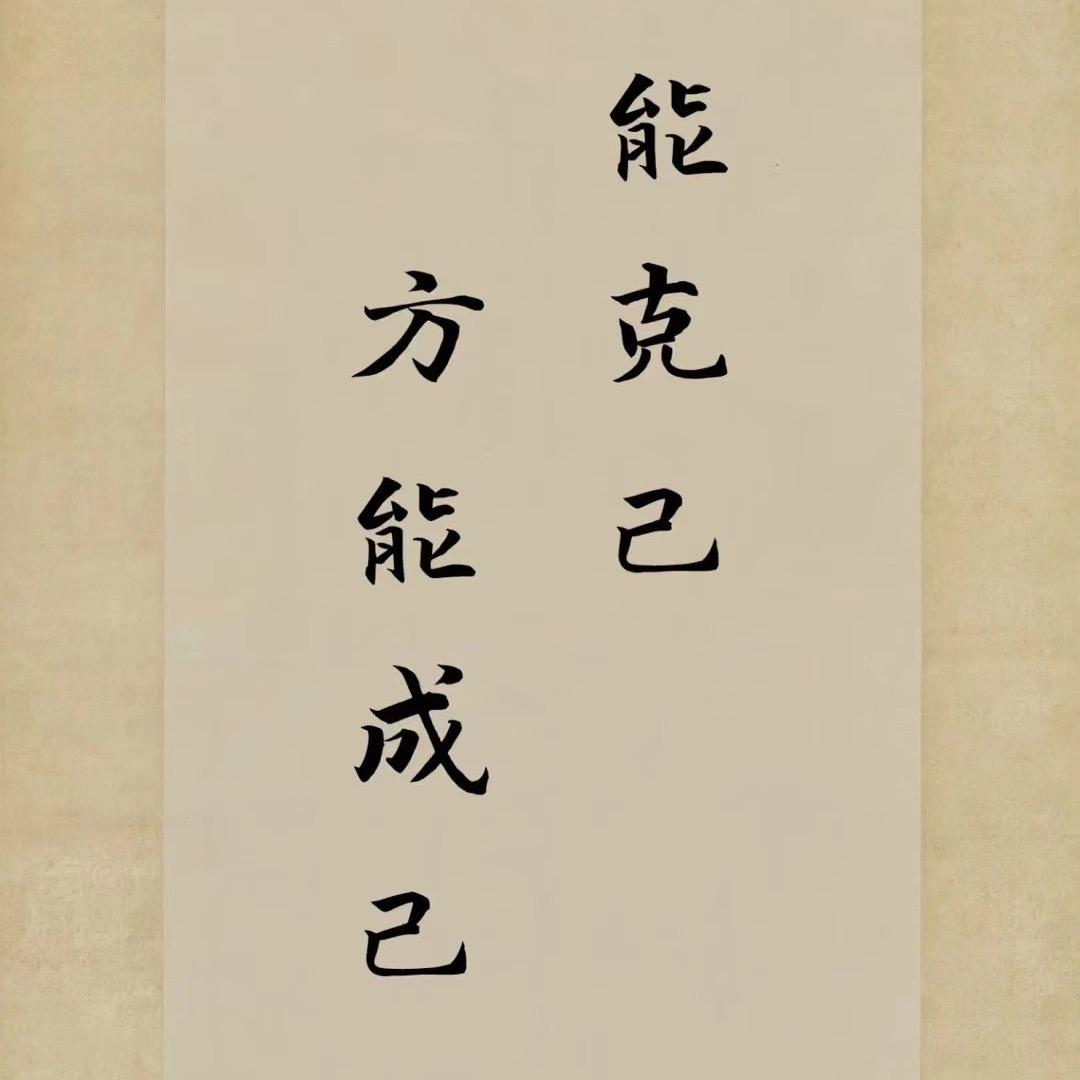 能克己
方能成己